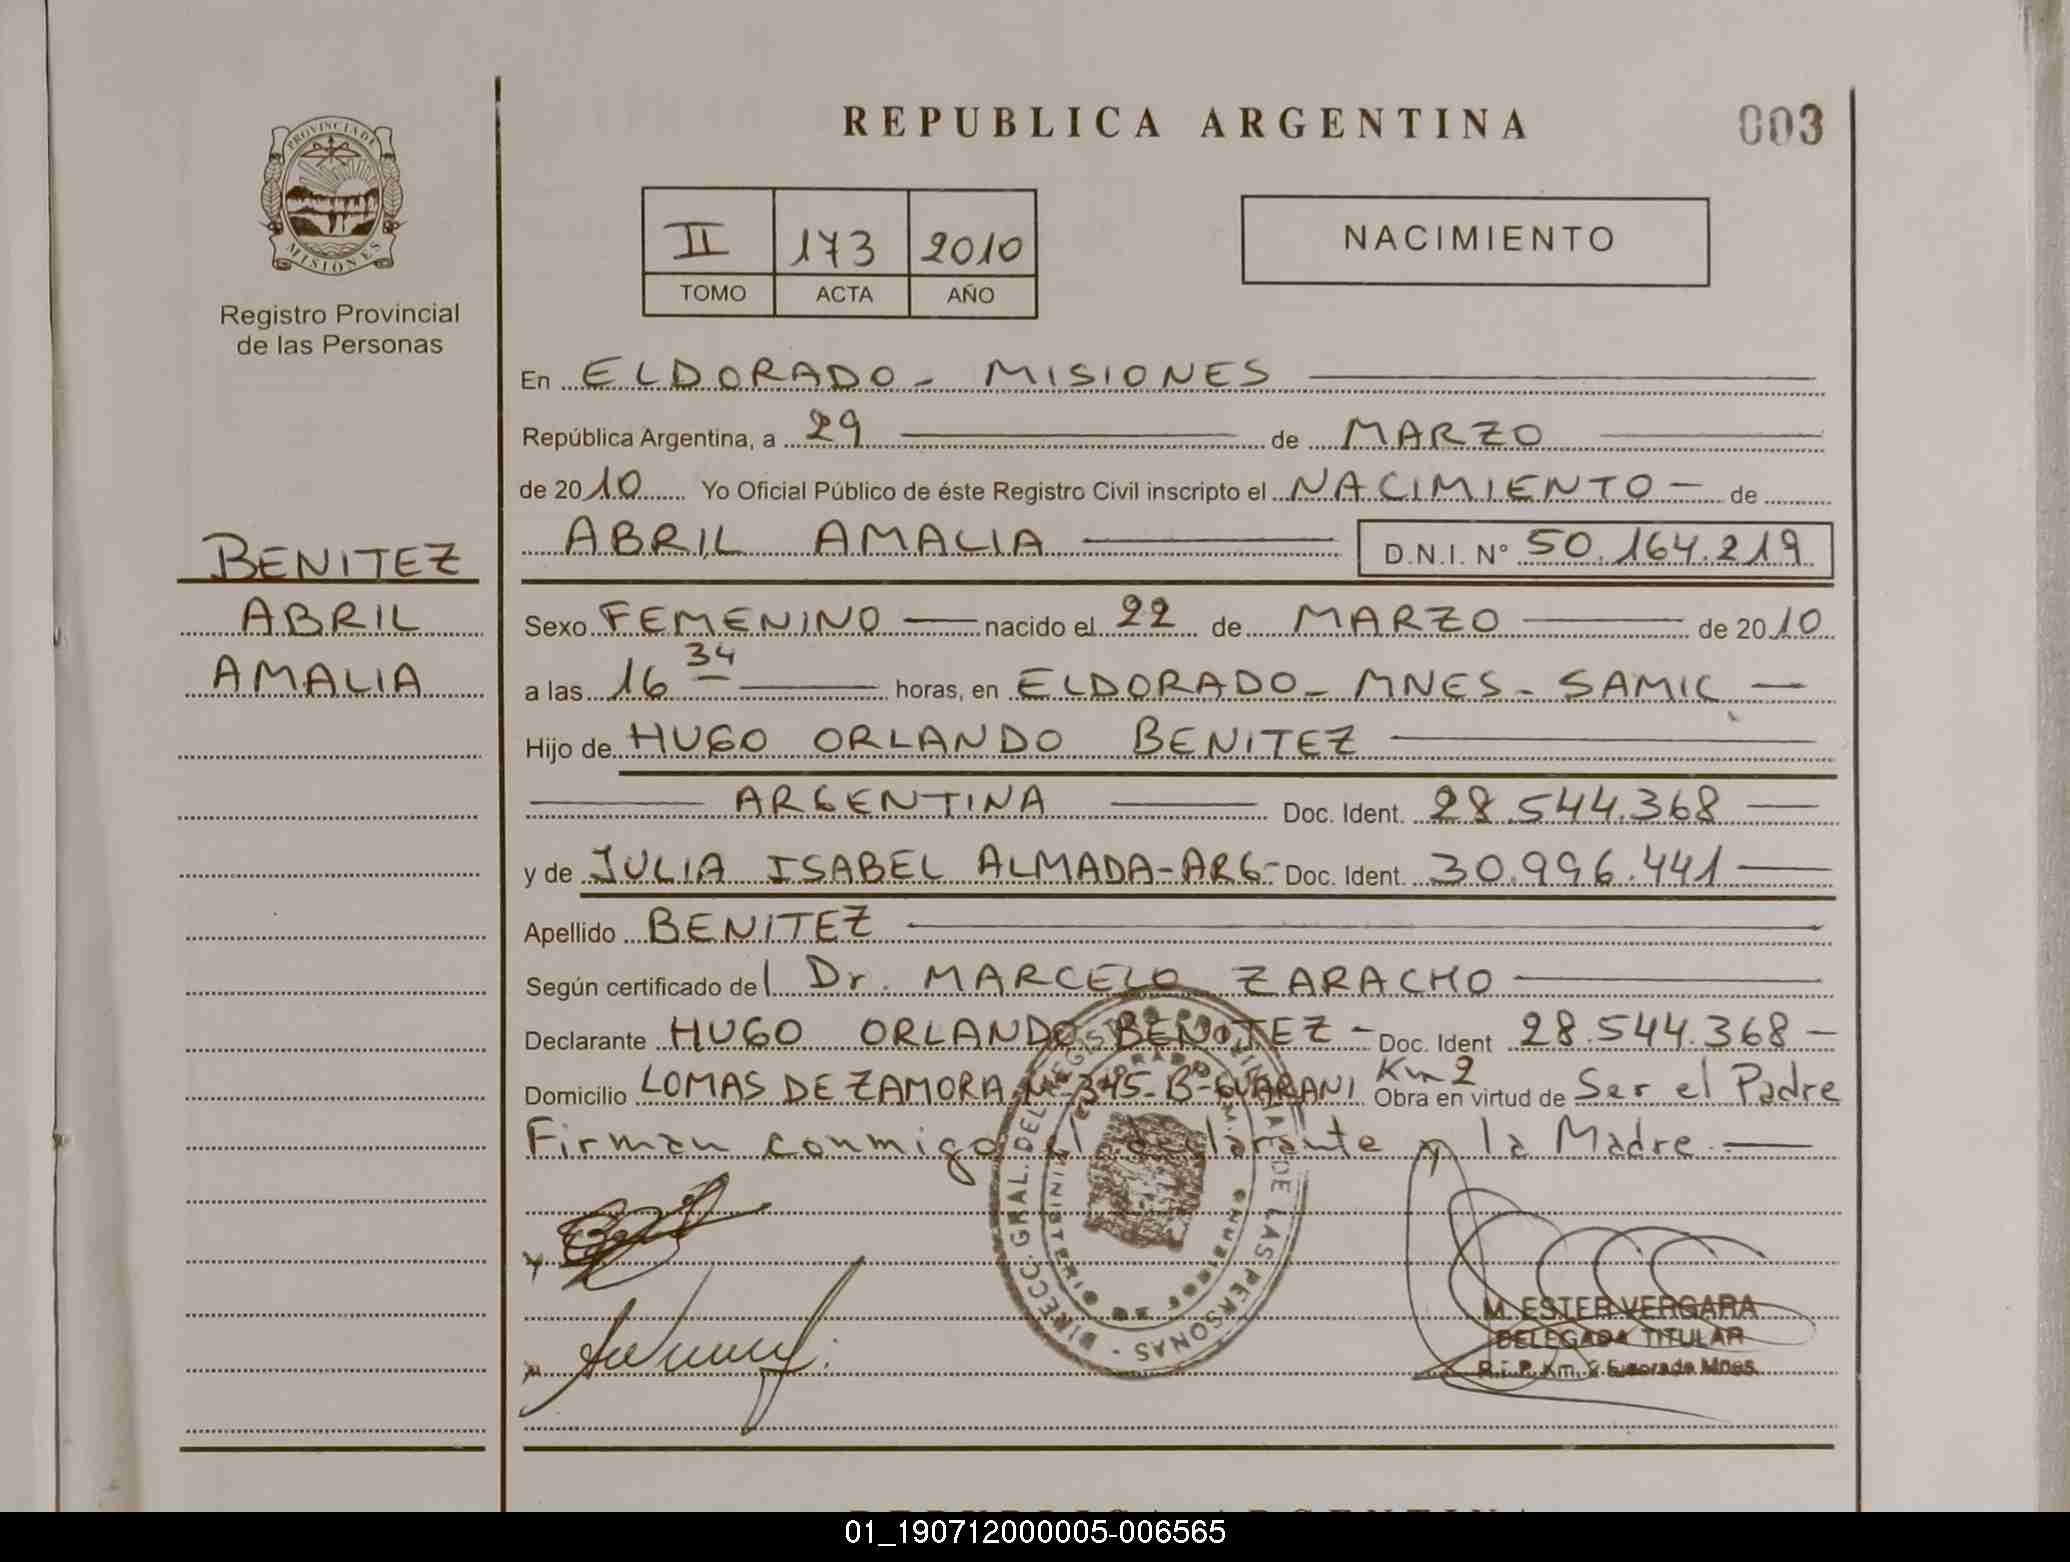 REPUBLICA ARGENTINA
003
PROVINCIA DE
MISIONES
Registro Provincial
de las Personas
II 173 2010
TOMO ACTA AÑO
NACIMIENTO
En ELDORADO - MISIONES
República Argentina, a 29 de MARZO
de 2010 Yo Oficial Público de éste Registro Civil inscripto el NACIMIENTO - de
ABRIL AMALIA D.N.I. N° 50.164.219
BENITEZ
ABRIL
AMALIA
Sexo FEMENINO nacido el 22 de MARZO de 2010
a las 16 34 horas, en ELDORADO - MNES - SAMIC
Hijo de HUGO ORLANDO BENITEZ
ARGENTINA Doc. Ident. 28.544.368
y de JULIA ISABEL ALMADA-ARG- Doc. Ident. 30.996.441
Apellido BENITEZ
Según certificado del Dr. MARCELO ZARACHO
Declarante HUGO ORLANDO BENITEZ - Doc. Ident 28.544.368 -
Domicilio LOMAS DE ZAMORA N° 345 - B° GUARANI Km 2 Obra en virtud de Ser el Padre
Firman conmigo el declarante y la Madre.
DIRECC. GRAL. DEL REGISTRO PROVINCIAL DE LAS PERSONAS
M. ESTER VERGARA
DELEGADA TITULAR
R. P. P. Km. 2 Eldorado Mnes.
01_190712000005-006565